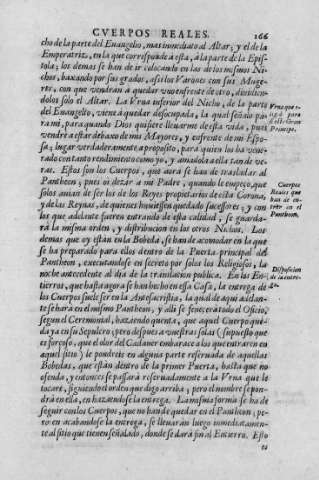 CVERPOS REALES. 166
cho de la parte del Euangelio, mas inmediato al Altar; y el de la
Emperatriz, en la que corresponde a esta, à la parte de la Epis-
tola; los demas se han de ir colocando en los de los mismos Ni-
chos, baxando por sus grados, assi los Varones con sus Muge-
res, con que vendràn à quedar vno enfrente de otro, diuidien-
dolos solo el Altar. La Vrna inferior del Nicho, de la parte
del Euangelio, viene à quedar desocupada, la qual señalo pa-
ra mi, para quando Dios quisiere lleuarme de esta vida, pues
vendrè a estar debaxo de mis Mayores, y enfrente de mi Espo-
sa; lugar verdaderamente à proposito, para quien los ha vene-
rado con tanto rendimiento como yo, y amadola a ella tan de ve-
ras. Estos son los Cuerpos, que aora se han de trasladar al
Pantheon; pues el dexar a mi Padre, quando le empeço, que
solos auian de ser los de los Reyes propietarios desta Corona,
y de las Reynas, de quienes huuiessen quedado sucessores; y con
los que adelante fueren entrando de esta calidad, se guarda-
rà la misma orden, y distribucion en los otros Nichos. Los
demas que oy estàn en la Bobeda, se han de acomodar en la que
se ha preparado para ellos dentro de la Puerta principal del
Pantheon, executandose en secreto por solos los Religiosos, la
noche antecedente al dia de la translacion publica. En los En-
tierros, que hasta agora se han hecho en essa Casa, la entrega de
los Cuerpos suele ser en la Antesacristia, la qual de aqui adelan-
te se harà en el mismo Pantheon, y alli se fenecerà todo el Oficio,
segun el Ceremonial, haziendo quenta, que aquel Cuerpo que-
da ya en su Sepulcro; pero despues a vuestras solas (supuesto que
es forçoso, que el olor del Cadauer embarace a los que entraren en
aquel sitio) le pondreis en alguna parte reseruada de aquellas
Bobedas, que estàn dentro de la primer Puerta, hasta que no
ofenda, y entonces se passarà reseruadamente a la Vrna que le
tocare, siguiendo el orden que digo arriba; pero el nombre se pon-
drà en ella, en haziendose la entrega. La misma forma se ha de
seguir con los Cuerpos, que no han de quedar en el Pantheon; pe-
ro en acabandose la entrega, se lleuaràn luego inmediatamen-
te al sitio que tienen señalado, donde se darà fin al Entierro. Esto
es
Vrna que e-
ligiò para
si el Gran
Principe.
Cuerpos
Reales que
han de en-
trar en el
Pantheon.
Disposicion
de la entre-
ga.